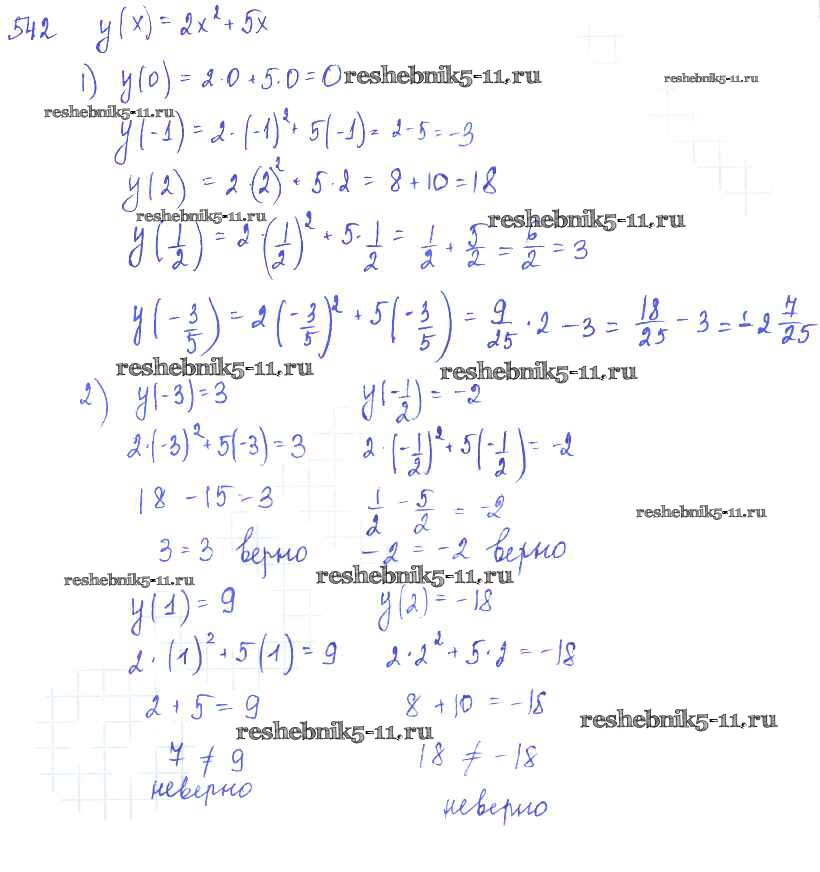 542 y(x) = 2x² + 5x
1) y(0) = 2·0 + 5·0 = 0 reshebnik5-11.ru reshebnik5-11.ru
reshebnik5-11.ru
y(-1) = 2·(-1)² + 5(-1) = 2-5 = -3
y(2) = 2·(2)² + 5·2 = 8 + 10 = 18
reshebnik5-11.ru reshebnik5-11.ru
y(1/2) = 2·(1/2)² + 5·1/2 = 1/2 + 5/2 = 6/2 = 3
y(-3/5) = 2(-3/5)² + 5(-3/5) = 9/25·2 - 3 = 18/25 - 3 = -2 7/25
reshebnik5-11.ru reshebnik5-11.ru
2) y(-3) = 3 y(-1/2) = -2
2·(-3)² + 5(-3) = 3 2·(-1/2)² + 5(-1/2) = -2
18 - 15 - 3 1/2 - 5/2 = -2
reshebnik5-11.ru
3 = 3 верно -2 = -2 верно
reshebnik5-11.ru reshebnik5-11.ru
y(1) = 9 y(2) = -18
2·(1)² + 5(1) = 9 2·2² + 5·2 = -18
2 + 5 = 9 8 + 10 = -18
reshebnik5-11.ru reshebnik5-11.ru
7 ≠ 9 18 ≠ -18
неверно неверно